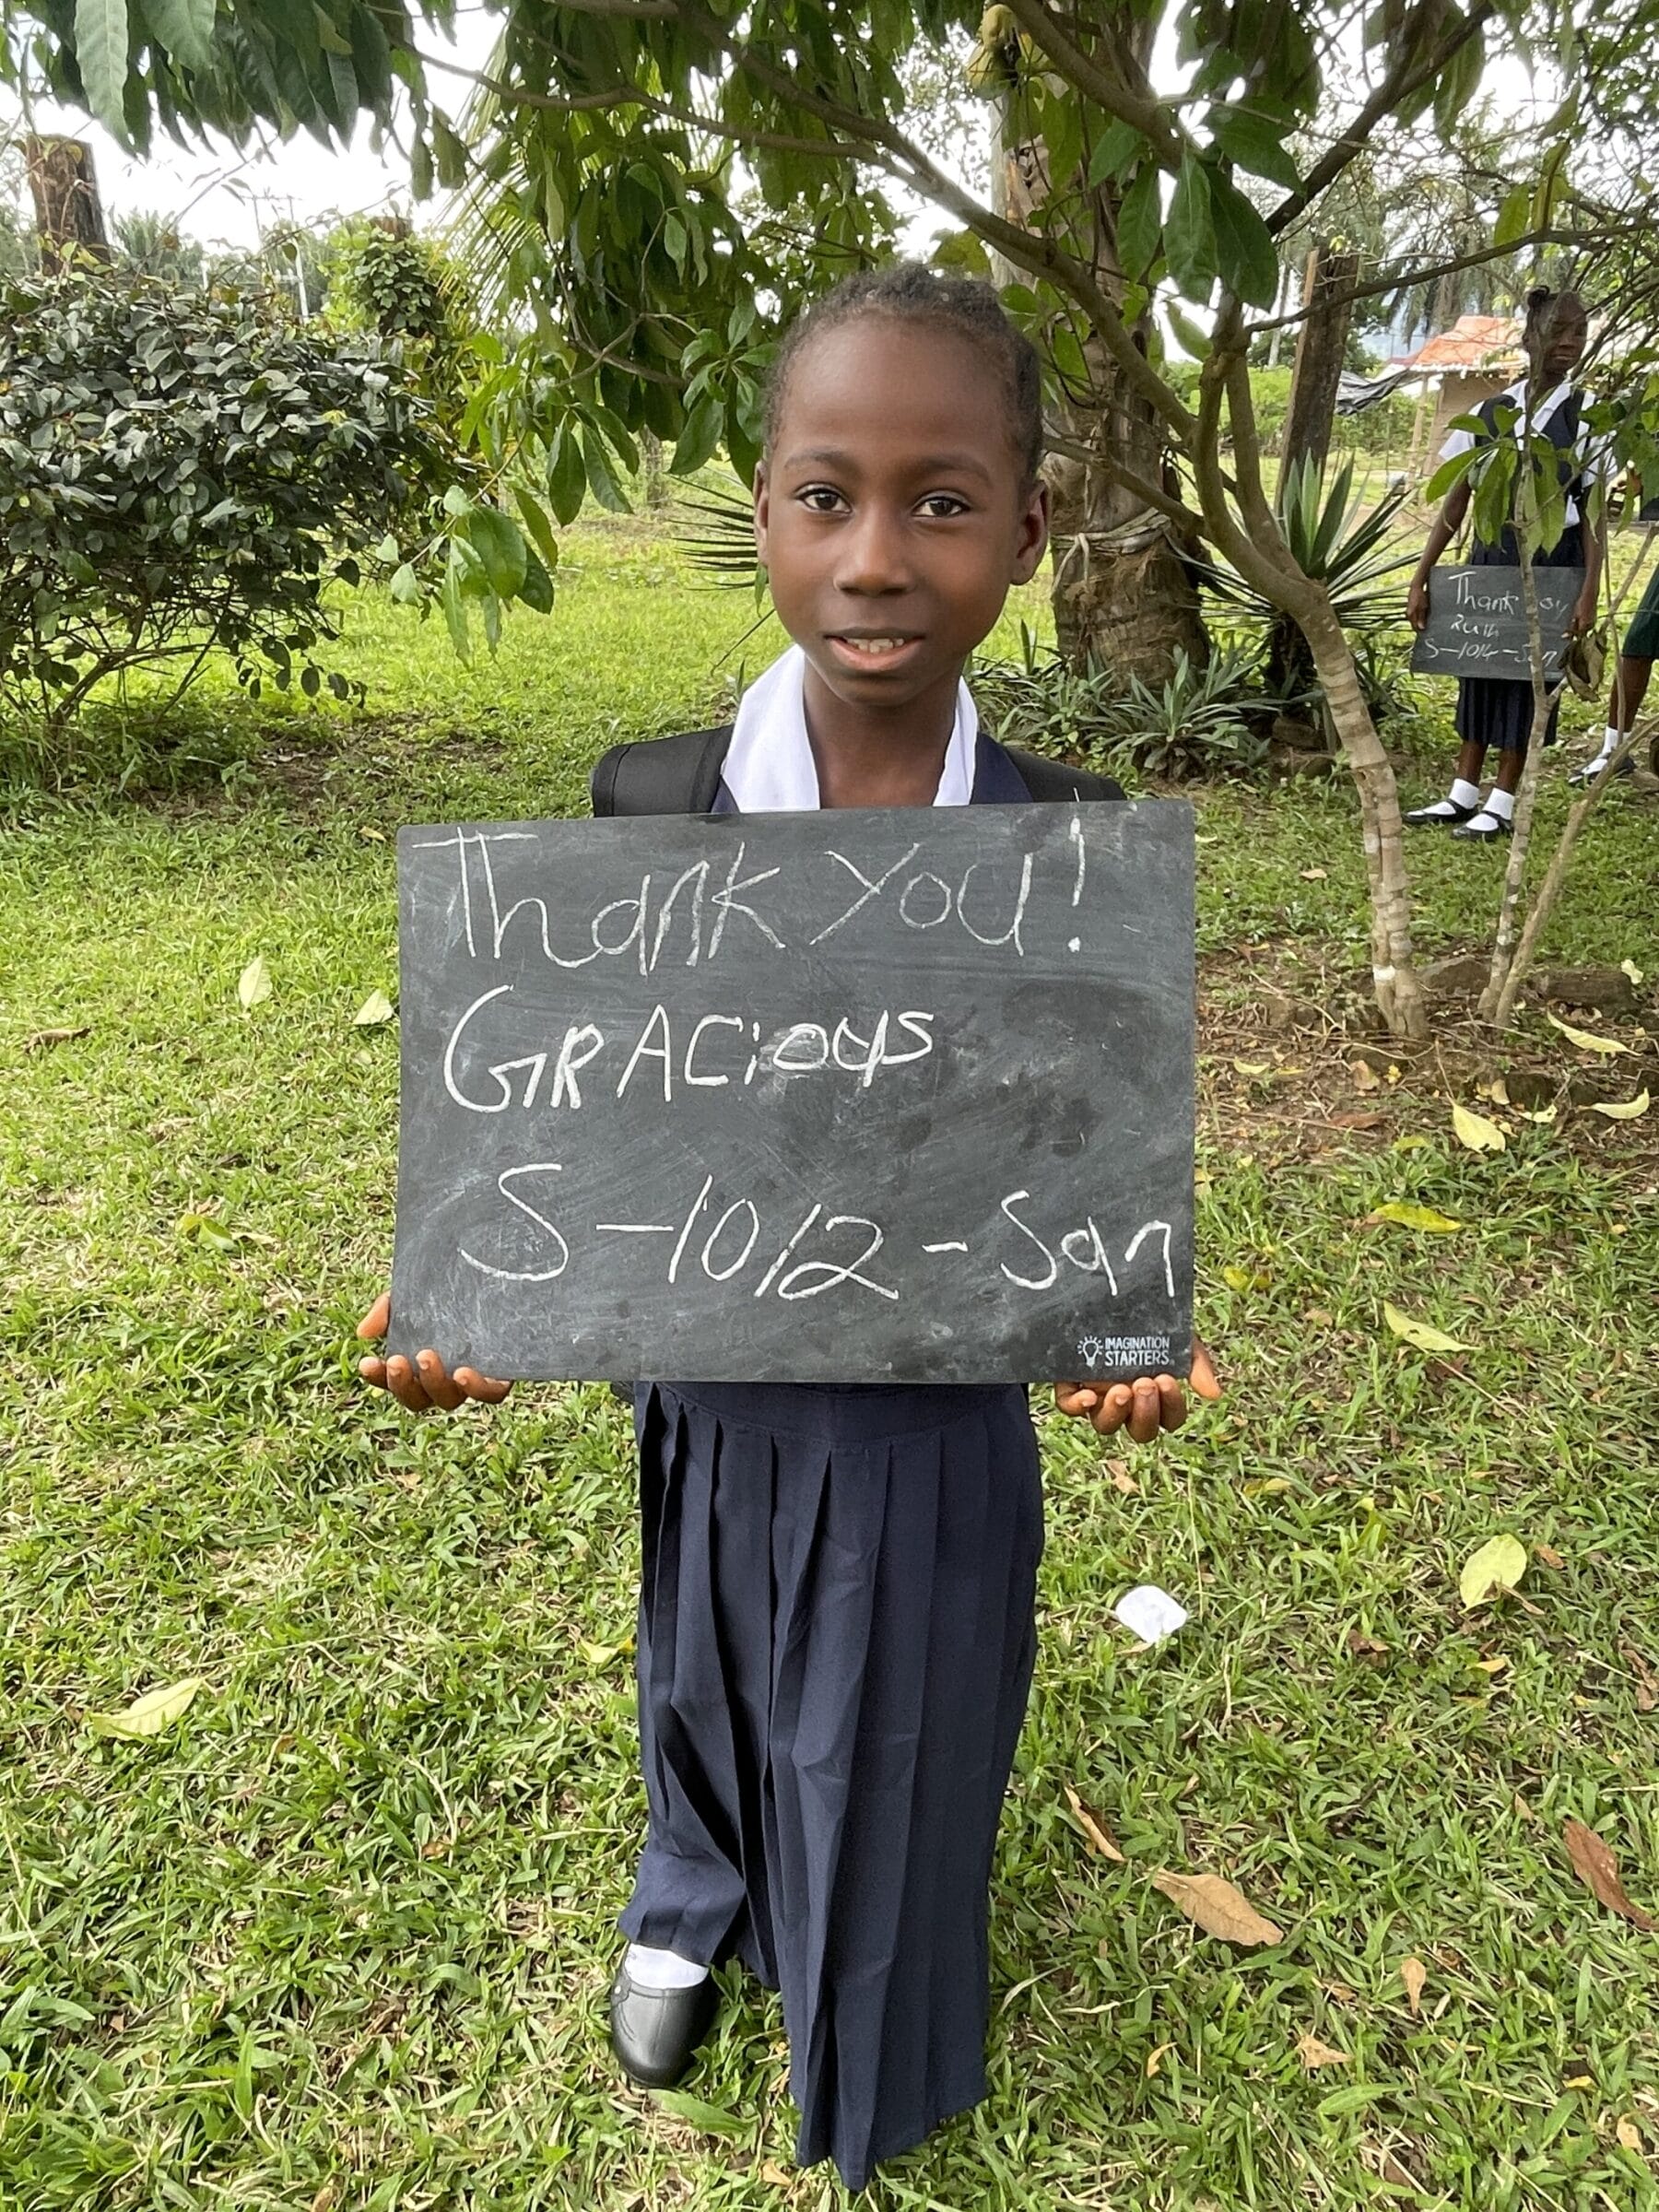 Thank You!
GRACious
S-1012-San
IMAGINATION
STARTERS
Thank you
Ruth
S-1014-San